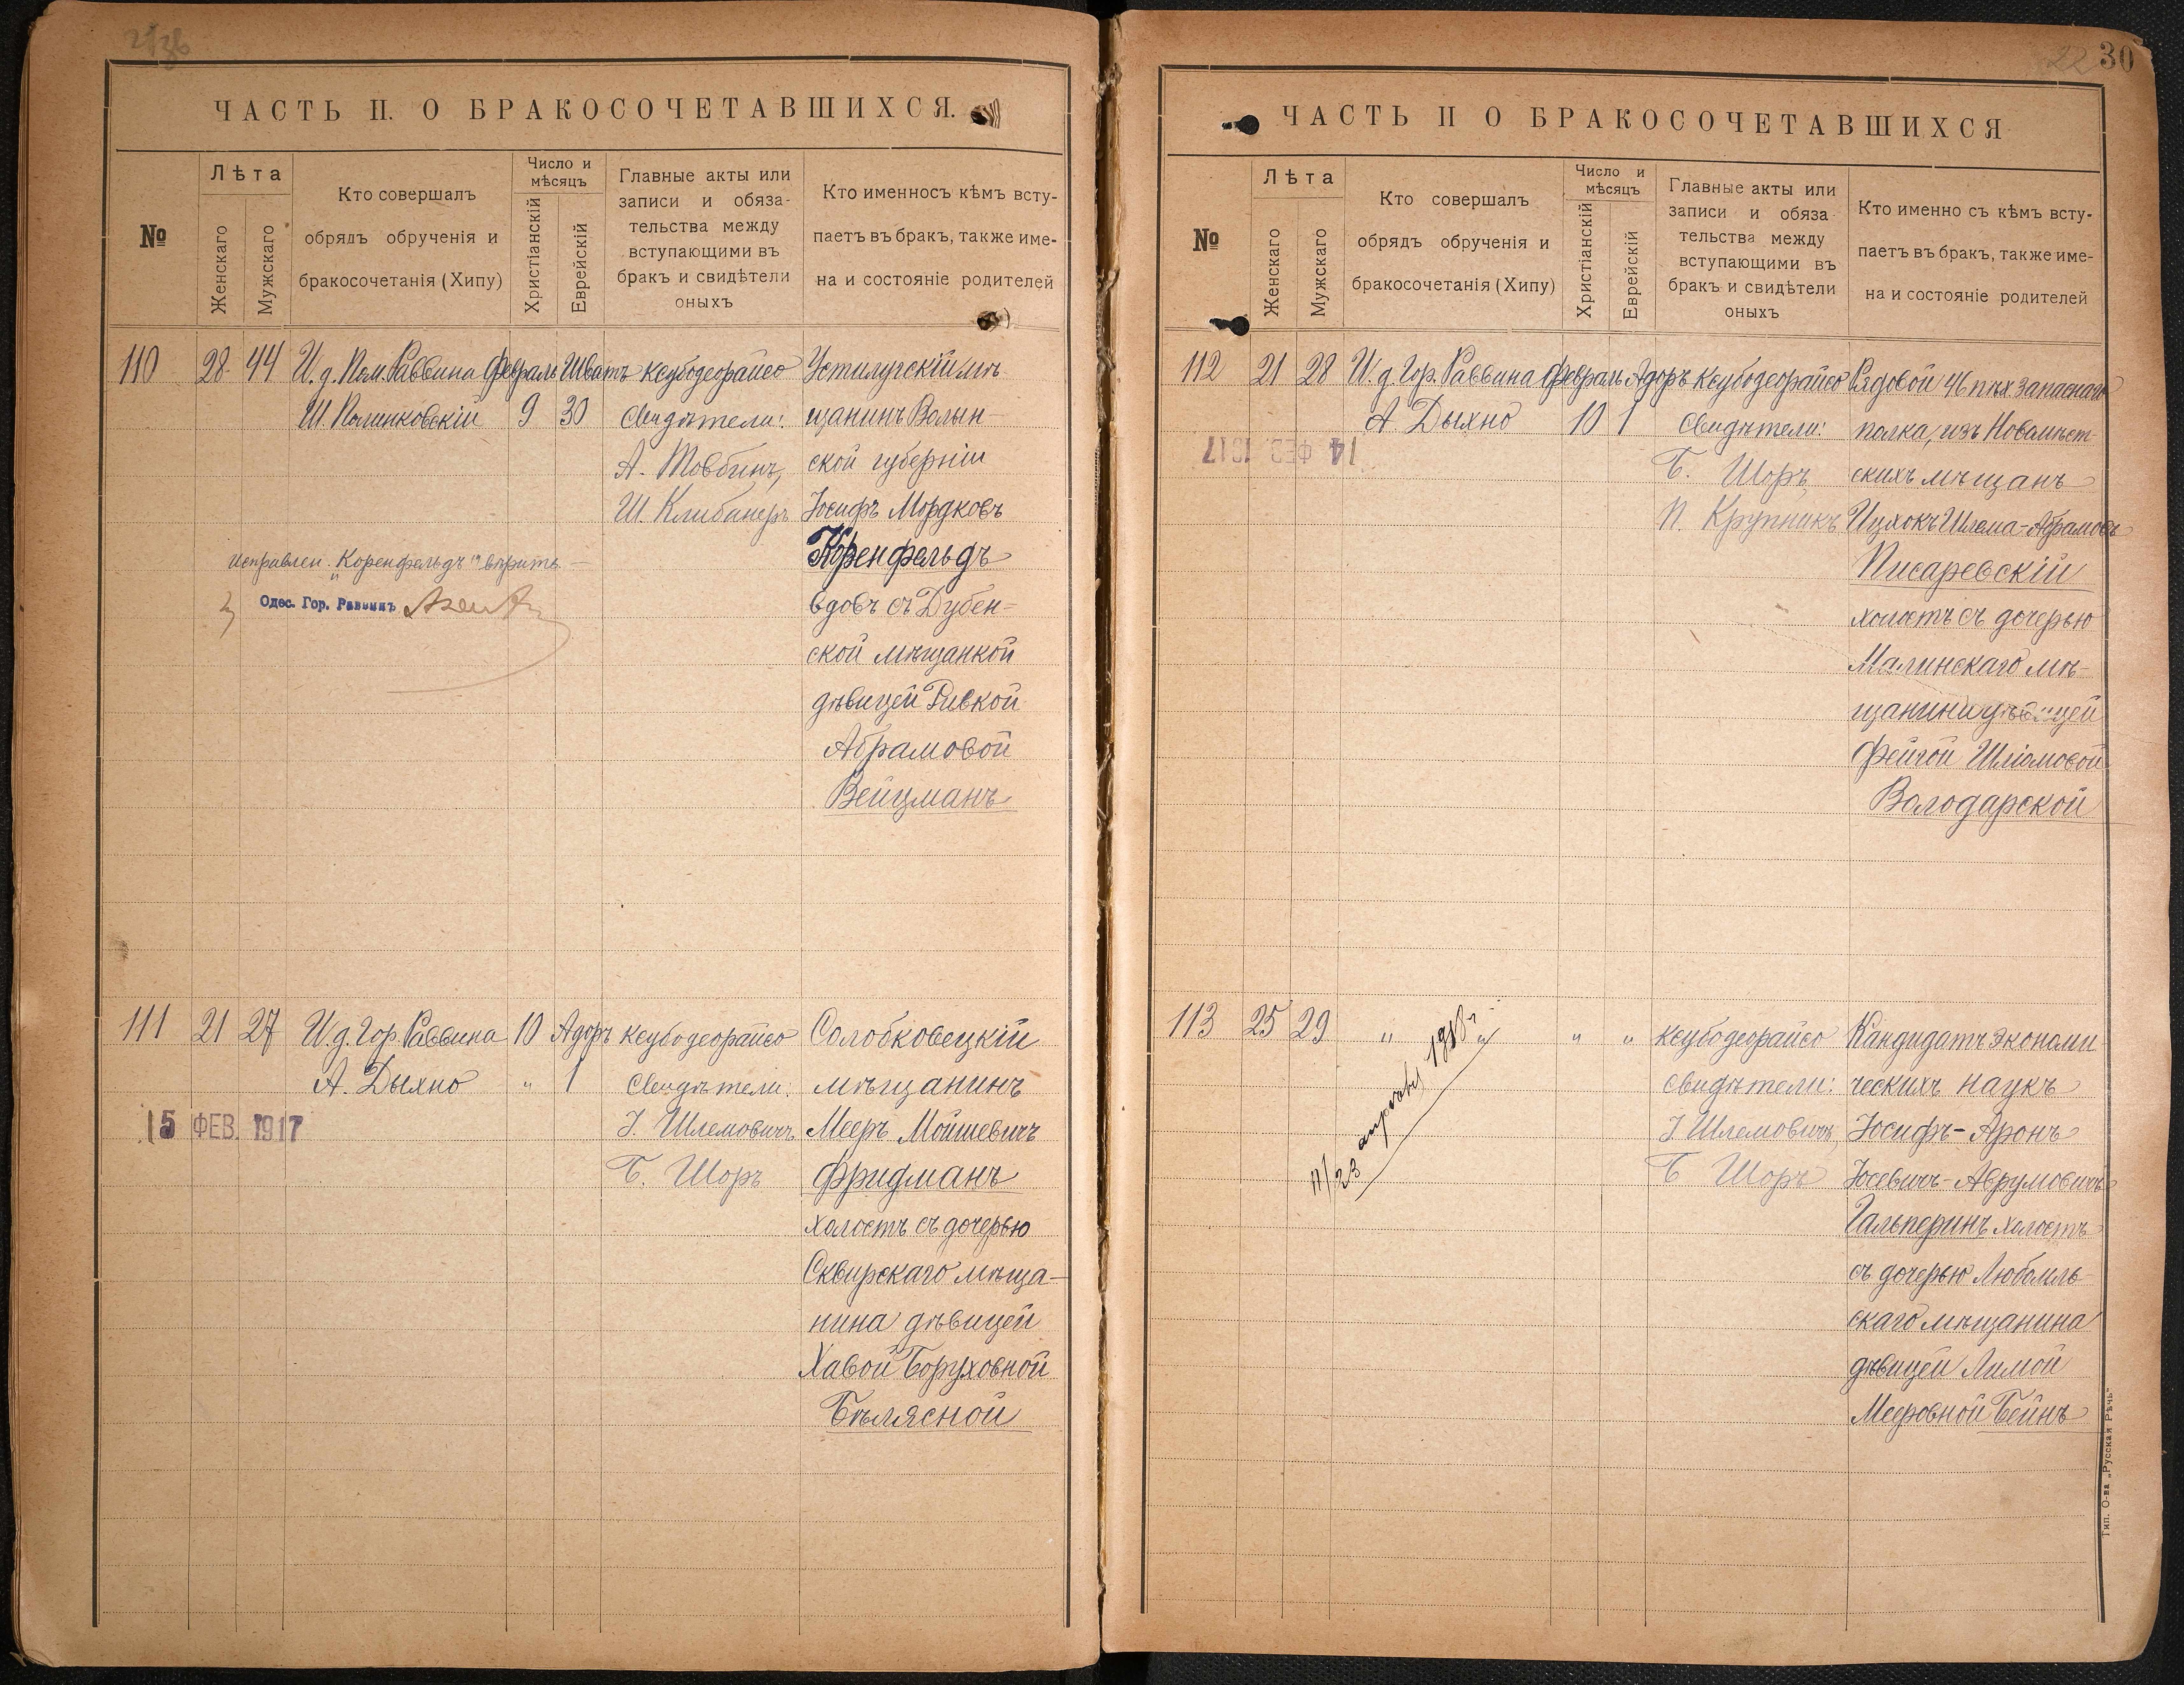 ЧАСТЬ II. О БРАКОСОЧЕТАВШИХСЯ.
№
Лѣта
Женскаго
Мужскаго
Кто совершалъ
обрядъ обрученія и
бракосочетанія (Хипу)
Число и
мѣсяцъ
Христіанскій
Еврейскій
Главные акты или
записи и обяза-
тельства между
вступающими въ
бракъ и свидѣтели
оныхъ
Кто именносъ кѣмъ всту-
паетъ въ бракъ, также име-
на и состояніе родителей
110
28
44
И. д. Пом. Раввина
Ш. Полинковскій
Февраль
9
Шватъ
30
Ксубодеорайсо
Свидѣтели:
А. Товбинъ,
Ш. Клибанеръ
Устилугскій мѣ
щанинъ Волын-
ской губерніи
Іосифъ Мордковъ
Коренфельдъ
вдовъ съ Дубен-
ской мѣщанкой
дѣвицей Ривкой
Абрамовой
Вейцманъ
Исправлен. "Коренфельдъ" вѣрить
Одес. Гор. Раввинъ
111
21
27
И. д. Гор. Раввина
А. Дыхно
10
"
Адоръ
1
Ксубодеорайсо
Свидѣтели:
І. Шлемовичъ,
Б. Шоръ
Солобковецкій
мѣщанинъ
Мееръ Мойшевичъ
Фридманъ
холостъ съ дочерью
Сквирскаго мѣща-
нина дѣвицей
Хавой Боруховной
Бѣлясной
15 ФЕВ. 1917
30
22
ЧАСТЬ II О БРАКОСОЧЕТАВШИХСЯ
№
Лѣта
Женскаго
Мужскаго
Кто совершалъ
обрядъ обрученія и
бракосочетанія (Хипу)
Число и
мѣсяцъ
Христіанскій
Еврейскій
Главные акты или
записи и обяза-
тельства между
вступающими въ
бракъ и свидѣтели
оныхъ
Кто именно съ кѣмъ всту-
паетъ въ бракъ, также име-
на и состояніе родителей
112
21
28
И. д. Гор. Раввина
А. Дыхно
Февраль
10
Адоръ
1
Ксубодеорайсо
Свидѣтели:
Б. Шоръ,
П. Крупникъ
Рядовой 46 пѣх запаснаго
полка, изъ Новомѣст-
скихъ мѣщанъ
Ицхокъ Шлема-Абрамовъ
Писаревскій
холостъ съ дочерью
Малинскаго мѣ-
щанина дѣвицей
Фейгой Шліомовой
Володарской
14 ФЕВ. 1917
113
25
29
"
"
"
"
Ксубодеорайсо
Свидѣтели:
І. Шлемовичъ,
Б Шоръ
Кандидатъ экономи
ческихъ наукъ
Іосифъ-Аронъ
Іосевичъ-Аврумовичъ
Гальперинъ холостъ
съ дочерью Любомль-
скаго мѣщанина
дѣвицей Лимой
Мееровной Бейнъ
Тип. О-ва „Русская Рѣчь"